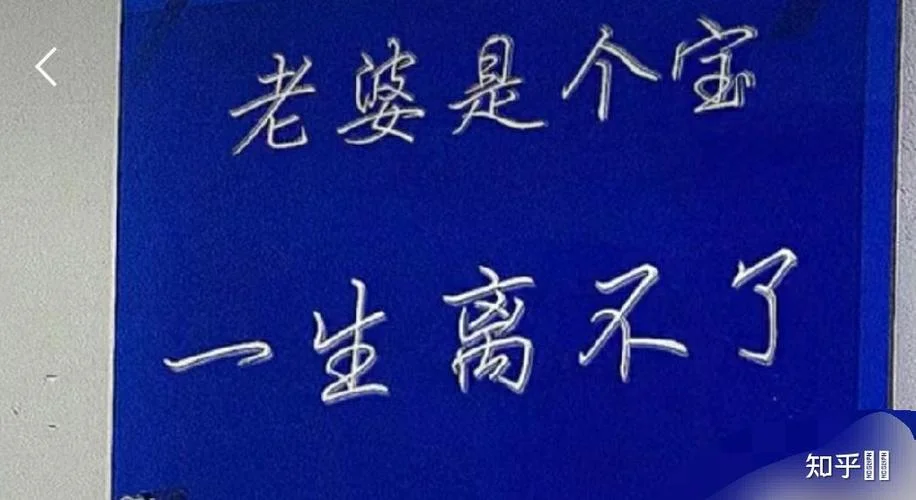 老婆是个宝
一生离不了
知乎